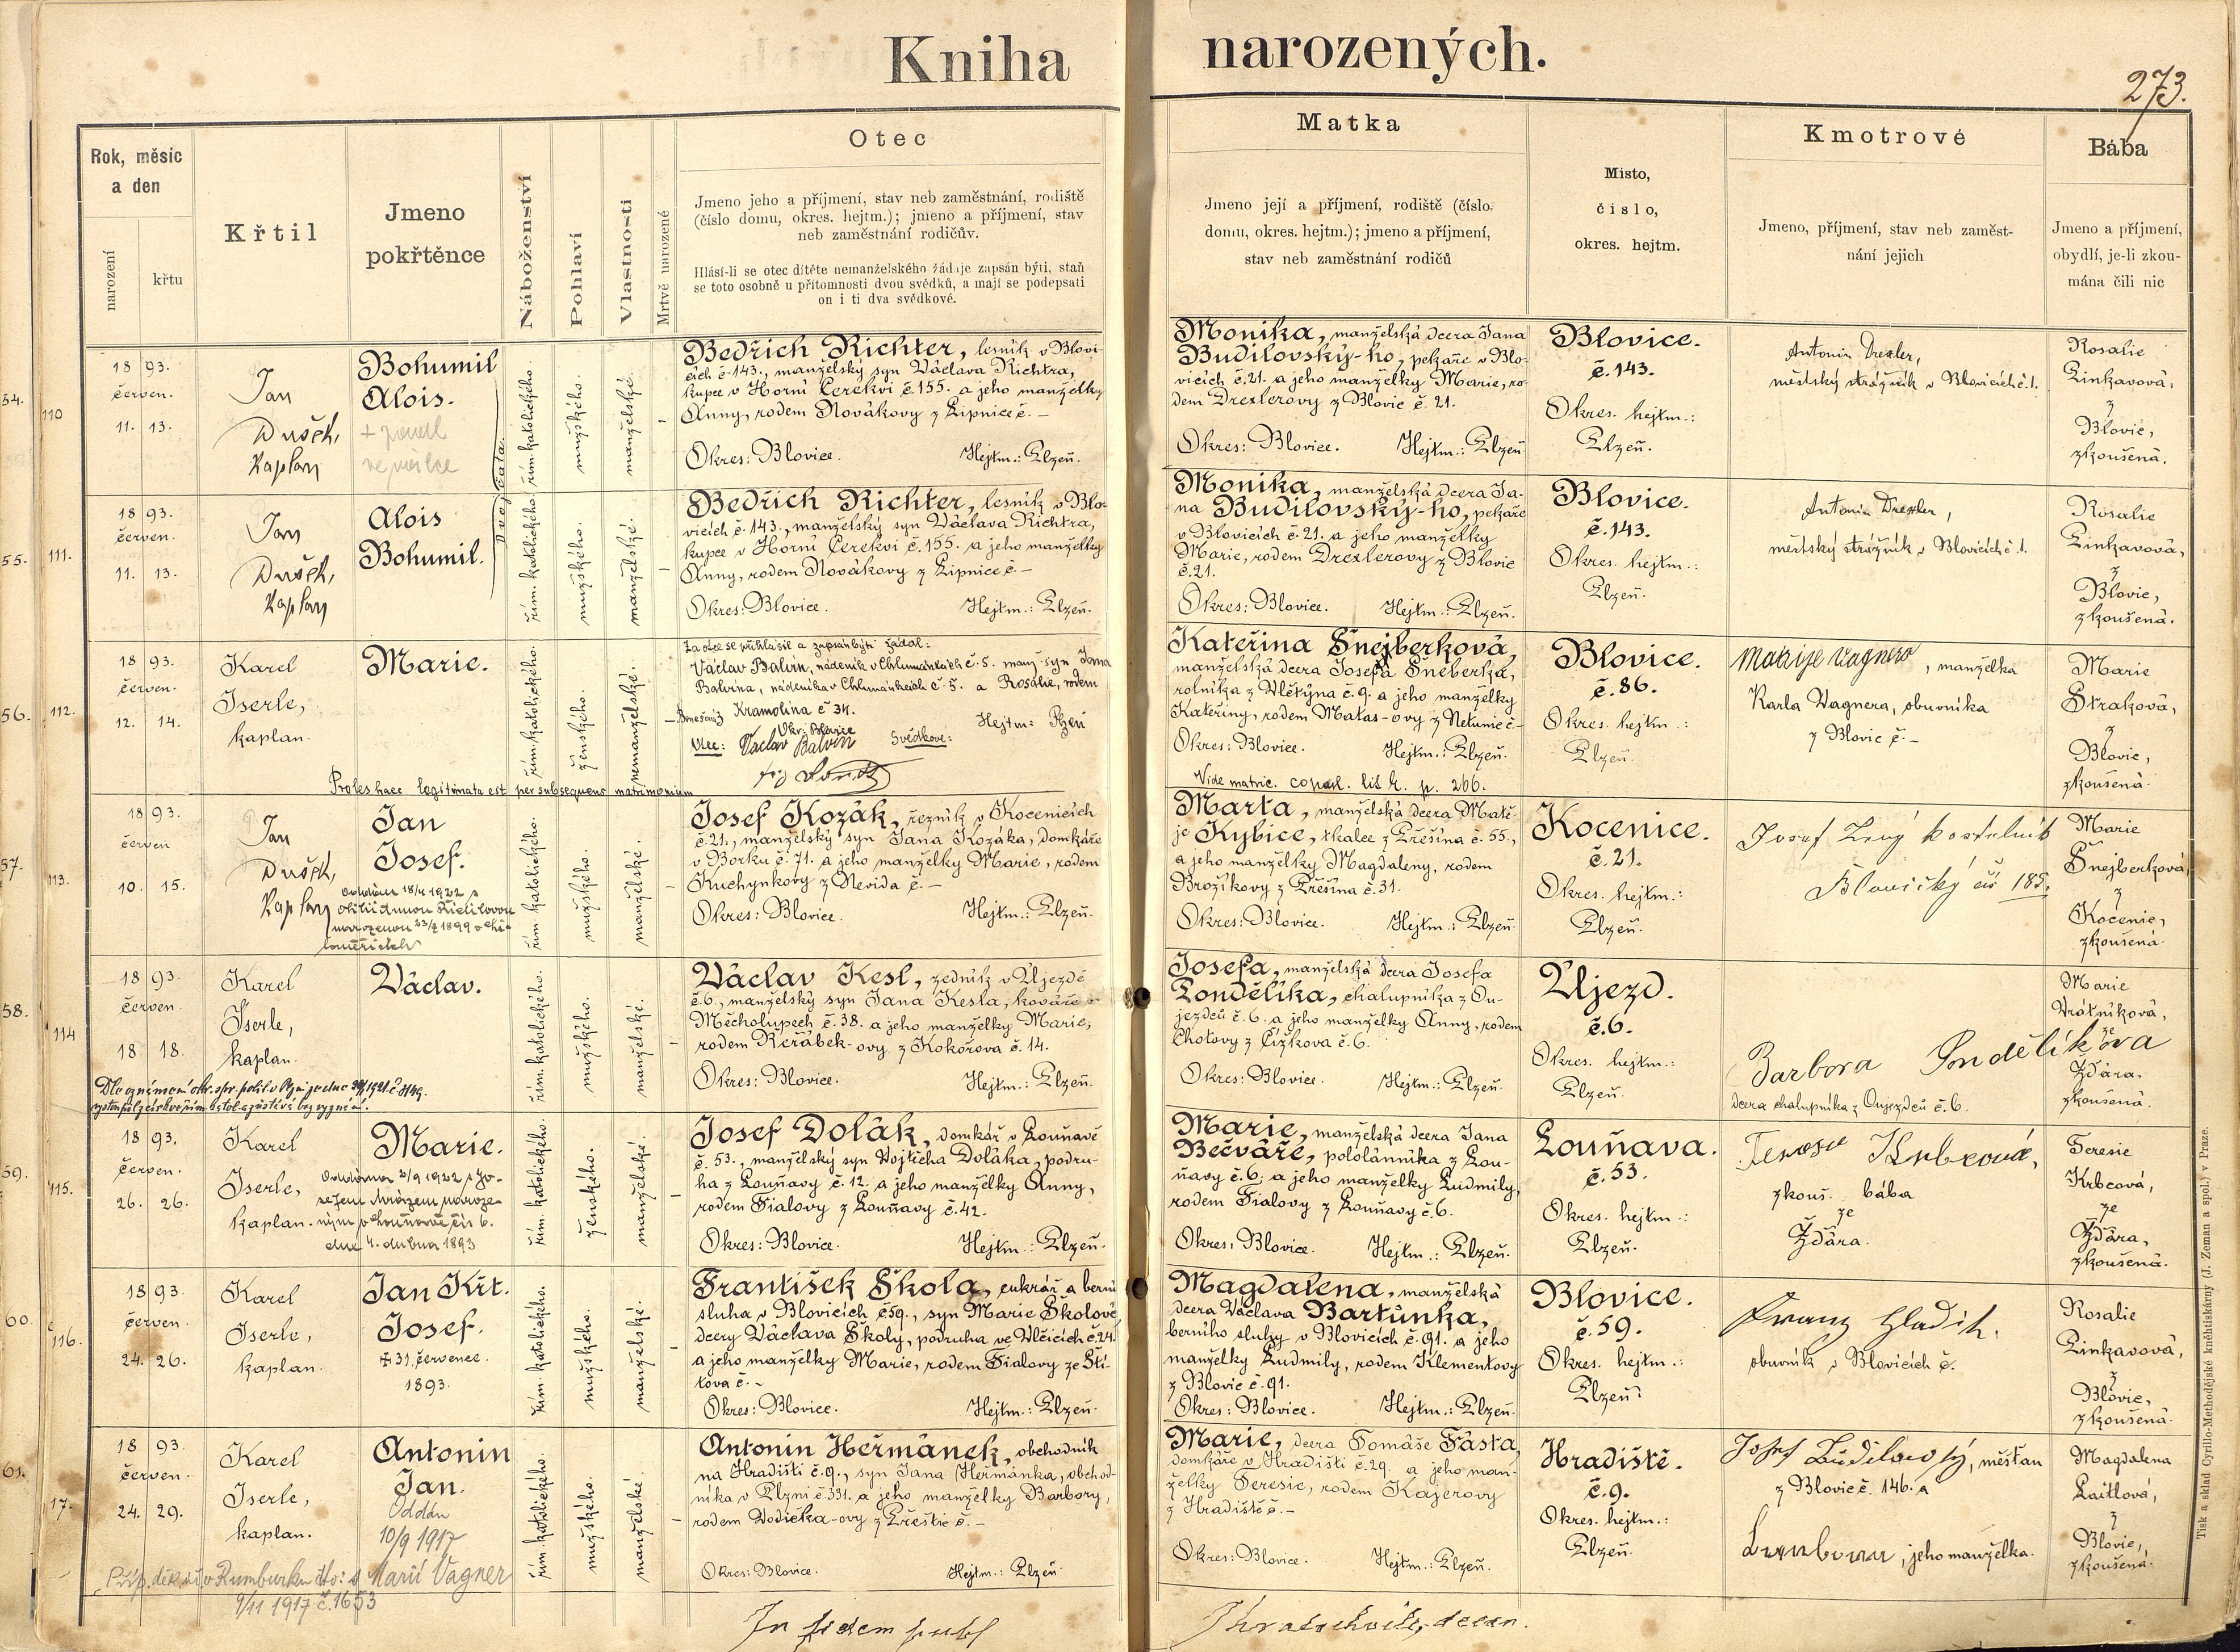 Kniha narozených.
273.
Rok, měsíc
a den
narození
křtu
Křtil
Jmeno
pokřtěnce
Náboženství
Pohlaví
Vlastnosti
Mrtvě narozené
Otec
Jmeno jeho a příjmení, stav neb zaměstnání, rodiště
(číslo domu, okres. hejtm.); jmeno a příjmení, stav
neb zaměstnání rodičův.
Hlásí-li se otec dítěte nemanželského žádaje zapsán býti, staň
se toto osobně u přítomnosti dvou svědků, a mají se podepsati
on i ti dva svědkové.
Matka
Jmeno její a příjmení, rodiště (číslo
domu, okres. hejtm.); jmeno a příjmení,
stav neb zaměstnání rodičů
Místo,
číslo,
okres. hejtm.
Kmotrové
Jmeno, příjmení, stav neb zaměst-
nání jejich
Bába
Jmeno a příjmení,
obydlí, je-li zkou-
mána čili nic
54.
110
1893.
červen.
11. 13.
Jan
Dušek,
Kaplan
Bohumil
Alois.
dvojčata.
řím. katolického.
mužského.
manželské.
–
Bedřich Richter, lesník v Blovi-
cích č. 143., manželský syn Václava Richtra,
kupce v Horní Cerekvi č. 155. a jeho manželky
Anny, rodem Novákovy z Lipnice č. –
Okres: Blovice. Hejtm.: Plzeň.
Monika, manželská dcera Jana
Budilovský-ho, pekaře v Blo-
vicích č. 21. a jeho manželky Marie, ro-
dem Drexlerovy z Blovic č. 21.
Okres: Blovice. Hejtm.: Plzeň
Blovice.
č. 143.
Okres. hejtm.:
Plzeň.
Antonín Drexler,
městský strážník v Blovicích č. 1.
Rosalie
Linkavová,
z
Blovic,
zkoušená.
55.
111.
1893.
červen.
11. 13.
Jan
Dušek,
Kaplan
Alois
Bohumil.
řím. katolického.
mužského.
manželské.
–
Bedřich Richter, lesník v Blo-
vicích č. 143., manželský syn Václava Richtra,
kupce v Horní Cerekvi č. 155. a jeho manželky
Anny, rodem Novákovy z Lipnice č. –
Okres: Blovice. Hejtm.: Plzeň.
Monika, manželská dcera Ja-
na Budilovský-ho, pekaře
v Blovicích č. 21. a jeho manželky
Marie, rodem Drexlerovy z Blovic
č. 21.
Okres: Blovice. Hejtm.: Plzeň.
Blovice.
č. 143.
Okres. hejtm.:
Plzeň.
Antonín Drexler,
městský strážník v Blovicích č. 1.
Rosalie
Linkavová,
z
Blovic,
zkoušená.
56.
112.
1893.
červen.
12. 14.
Karel
Iserle,
kaplan.
Marie.
řím. katolického.
ženského.
nemanželské.
–
Za otce se přihlásil a zapsán býti žádal:
Václav Balvín, nádeník v Chlumánkách č. 5. manž. syn Jana
Balvína, nádeníka v Chlumánkách č. 5. a Rosalie, rodem
z Kramolína č 34.
Okr: Blovice Hejtm: Plzeň
Otec: Václav Balvín Svědkové:
Proles haec legitimata est per subsequens matrimonium
Kateřina Šnejberková,
manželská dcera Josefa Šneberka,
rolníka z Vlčtýna č. 9. a jeho manželky
Kateřiny, rodem Matas-ovy z Netunic č –
Okres: Blovice. Hejtm.: Plzeň.
Vide matric. copul. lit. p. 266.
Blovice.
č. 86.
Okres. hejtm.:
Plzeň.
Marije Vagnero, manželka
Karla Vagnera, obuvníka
z Blovic č. –
Marie
Straková,
z
Blovic,
zkoušená.
57.
113.
1893.
červen
10. 15.
Jan
Dušek,
Kaplan
Jan
Josef.
Oddán 18/4 1922 s
narozenou 23/4 1899 v Chi-
řím. katolického.
mužského.
manželské.
–
Josef Kozák, řezník v Kocenicích
č. 21., manželský syn Jana Kozáka, domkáře
v Borku č. 71. a jeho manželky Marie, rodem
Kuchynkovy z Nevida č. –
Okres: Blovice. Hejtm.: Plzeň.
Marta, manželská dcera Matě-
je Kybice, tkalce z Přešína č. 55.,
a jeho manželky Magdaleny, rodem
Brožíkovy z Přešína č. 31.
Okres: Blovice. Hejtm.: Plzeň.
Kocenice.
č. 21.
Okres. hejtm.:
Plzeň.
Josef Levý kostelník
Blovický čís 185.
Marie
Šnejberková,
z
Kocenic,
zkoušená.
58.
114
1893.
červen
18. 18.
Karel
Iserle,
kaplan.
Václav.
řím. katolického.
mužského.
manželské.
–
Václav Kesl, zedník v Újezdě
č. 6., manželský syn Jana Kesla, kováře v
Měcholupech č. 38. a jeho manželky Marie,
rodem Řeřábek-ovy z Kokořova č. 14.
Okres: Blovice. Hejtm.: Plzeň.
Josefa, manželská dcera Josefa
Pondělíka, chalupníka z Ou-
jezdců č. 6. a jeho manželky Anny, rodem
Chotovy z Čížkova č. 6.
Okres: Blovice. Hejtm.: Plzeň.
Újezd.
č. 6.
Okres. hejtm.:
Plzeň.
Barbora Pondělíkova
dcera chalupníka z Oujezdců č. 6.
Marie
Vrátníková,
ze
Ždára,
zkoušená.
59.
115.
1893.
červen.
26. 26.
Karel
Iserle,
kaplan.
Marie.
Oddána 2/9 1922 s Jo-
sefem Mrázem naroze-
ným v Louňové čís 6.
dne 4. dubna 1893
řím. katolického.
ženského.
manželské.
–
Josef Dolák, domkář v Louňavě
č. 53., manželský syn Vojtěcha Doláka, podru-
ha z Louňavy č. 12. a jeho manželky Anny,
rodem Fialovy z Louňavy č. 42.
Okres: Blovice. Hejtm.: Plzeň.
Marie, manželská dcera Jana
Bečváře, pololánníka z Lou-
ňavy č. 6. a jeho manželky Ludmily,
rodem Fialovy z Louňavy č. 6.
Okres: Blovice. Hejtm.: Plzeň.
Louňava.
č. 53.
Okres. hejtm.:
Plzeň.
Krbcová,
zkouš. bába
ze
Ždára.
Teresie
Krbcová,
ze
Ždára,
zkoušená.
60.
116.
1893.
červen.
24. 26.
Karel
Iserle,
kaplan.
Jan Křt.
Josef.
‡ 31. července.
1893.
řím. katolického.
mužského.
manželské.
–
František Škola, cukrář a berní
sluha v Blovicích č 59., syn Marie Školové,
dcery Václava Školy, podruha ve Vlčicích č. 24.
a jeho manželky Marie, rodem Fialovy ze Ští-
tova č. –
Okres: Blovice. Hejtm.: Plzeň.
Magdalena, manželská
dcera Václava Bartůňka,
berního sluhy v Blovicích č. 91. a jeho
manželky Ludmily, rodem Klementovy
z Blovic č. 91.
Okres: Blovice. Hejtm.: Plzeň.
Blovice.
č. 59.
Okres. hejtm.:
Plzeň.
Franz Hladik.
obuvník v Blovicích č.
Rosalie
Linkavová,
z
Blovic,
zkoušená.
61.
17.
1893.
červen.
24. 29.
Karel
Iserle,
kaplan.
Antonín
Jan.
Oddán
10/9 1917
v Rumburku s Marií Vagner
9/11 1917 č. 1653
řím. katolického.
mužského.
manželské.
–
Antonín Heřmánek, obchodník
na Hradišti č. 9., syn Jana Heřmánka, obchod-
níka v Plzni č. 331. a jeho manželky Barbory,
rodem Vodička-ovy z Přeštic č. –
Okres: Blovice. Hejtm.: Plzeň
Marie, dcera Tomáše Fasta,
domkáře v Hradišti č. 29. a jeho man-
želky Teresie, rodem Kajerovy
z Hradiště č. –
Okres: Blovice. Hejtm.: Plzeň.
Hradiště.
č. 9.
Okres. hejtm.:
Plzeň.
Josef Budilovský, měšťan
z Blovic č. 146. a
Barbora, jeho manželka.
Magdalena
Laitlová,
z
Blovic,
zkoušená.
In fidem publ
decan.
Tisk a sklad Cyrillo-Methodějské kněhtiskárny (J. Zeman a spol.) v Praze.